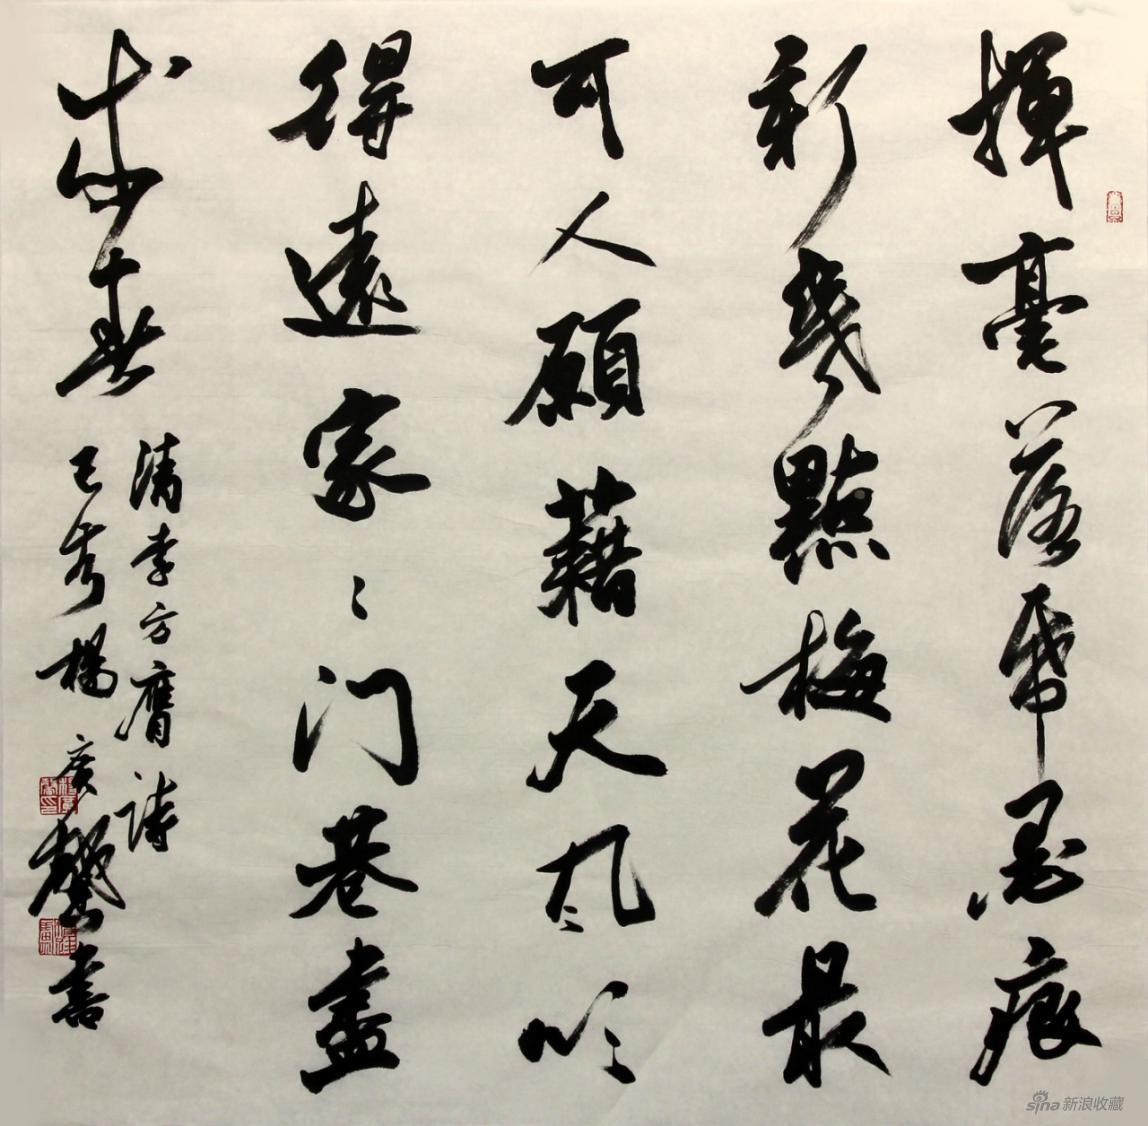 揮毫落帋墨痕
新幾點梅花最
可人願藉天風吹
得遠家〻门巷盡
成春
清李方膺詩
己亥楊廣馨書
sina 新浪收藏